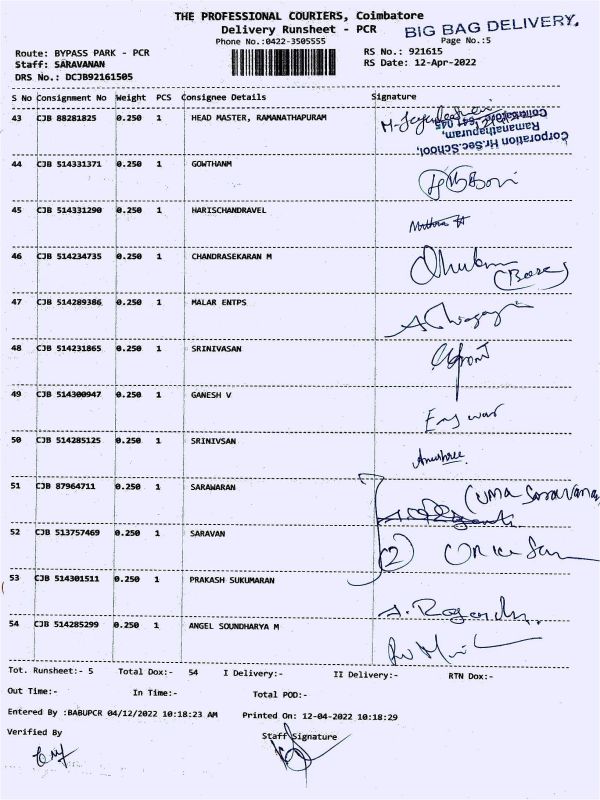 THE PROFESSIONAL COURIERS, Coimbatore
Delivery Runsheet - PCR
BIG BAG DELIVERY.
Phone No.:0422-3505555
Page No.:5
Route: BYPASS PARK - PCR
RS No.: 921615
Staff: SARAVANAN
RS Date: 12-Apr-2022
DRS No.: DCJB92161505
S No Consignment No Weight PCS Consignee Details Signature
43 CJB 88281825 0.250 1 HEAD MASTER, RAMANATHAPURAM
Corporation Hr.Sec.School,
Ramanathapuram,
Coimbatore - 641 045
44 CJB 514331371 0.250 1 GOWTHANM
45 CJB 514331290 0.250 1 HARISCHANDRAVEL
46 CJB 514234735 0.250 1 CHANDRASEKARAN M
47 CJB 514289386 0.250 1 MALAR ENTPS
48 CJB 514231865 0.250 1 SRINIVASAN
49 CJB 514300947 0.250 1 GANESH V
50 CJB 514285125 0.250 1 SRINIVSAN
Anushree
51 CJB 87964711 0.250 1 SARAWARAN
(uma Saravanan
52 CJB 513757469 0.250 1 SARAVAN
2
53 CJB 514301511 0.250 1 PRAKASH SUKUMARAN
54 CJB 514285299 0.250 1 ANGEL SOUNDHARYA M
Tot. Runsheet:- 5 Total Dox:- 54 I Delivery:- II Delivery:- RTN Dox:-
Out Time:- In Time:- Total POD:-
Entered By :BABUPCR 04/12/2022 10:18:23 AM Printed On: 12-04-2022 10:18:29
Verified By Staff Signature